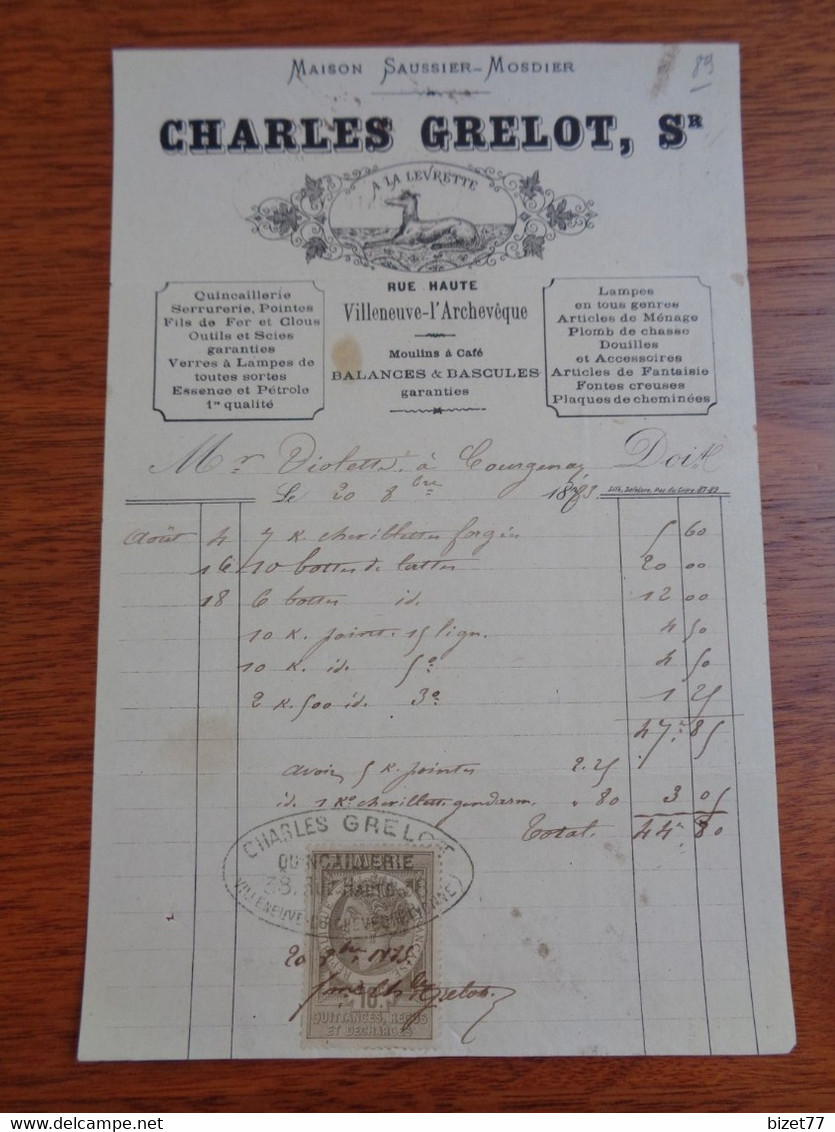 89
MAISON SAUSSIER-MOSDIER
CHARLES GRELOT, SR
A LA LEVRETTE
RUE HAUTE
Villeneuve-l'Archevêque
Moulins à Café
BALANCES & BASCULES
garanties
Quincaillerie
Serrurerie, Pointes
Fils de Fer et Clous
Outils et Scies
garanties
Verres à Lampes de
toutes sortes
Essence et Pétrole
1re qualité
Lampes
en tous genres
Articles de Ménage
Plomb de chasse
Douilles
et Accessoires
Articles de Fantaisie
Fontes creuses
Plaques de cheminées
Mr Violette à Courgenay Doit
Le 20 8bre 18
Août 4 7 K. chevillettes forgées 5 60
16 10 bottes de lattes 20 00
18 6 bottes id. 12 00
10 K. pointes 15 lign. 4 50
10 K. id. 5° 4 50
2 K. 500 id. 3° 1 25
47 85
avoir 5 K. pointes 2.25
id. 1 Ko chevillette gendarm. 80 3 05
Total 44 80
CHARLES GRELOT
QUINCAILLERIE
38, RUE HAUTE, 38
VILLENEUVE-L'ARCHEVEQUE (YONNE)
REPUBLIQUE FRANÇAISE
20 8bre
Grelot
10
QUITTANCES, REÇUS
ET DECHARGES
bizet77